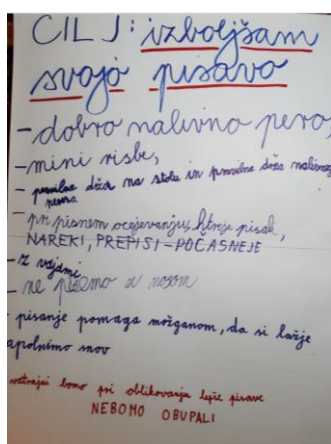 CILJ: izboljšam
svojo pisavo
- dobro nalivno pero,
- mini risbe,
- pravilna drža na stolu in pravilna drža nalivnega
peresa
- pri pisnem ocejevanju, hitreje pisat,
NAREKI, PREPISI - POČASNEJE
- z vajami
- ne pišemo z nosom
- pisanje pomaga možganom, da si lažje
zapolnimo snov
vztrajni bomo pri oblikovanju lepše pisave
NEBOMO OBUPALI